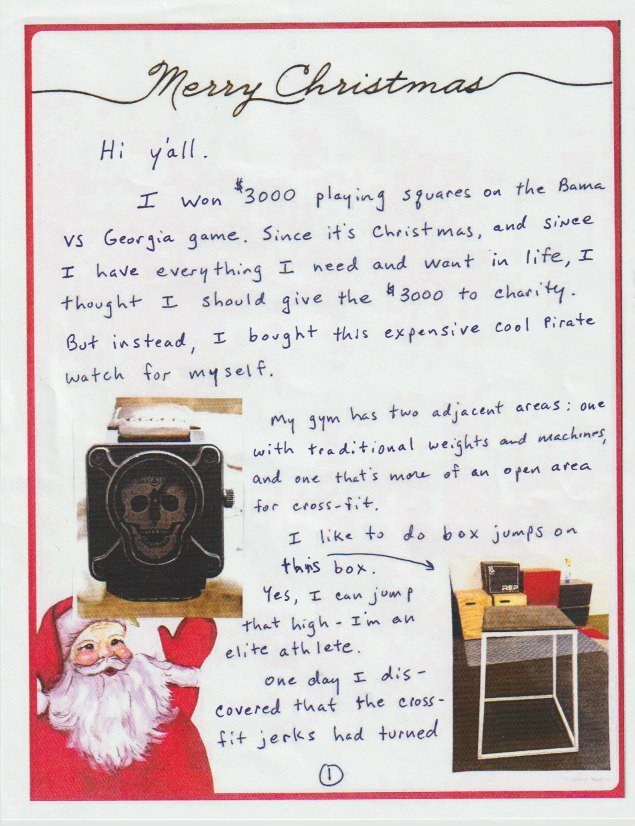 Merry Christmas
Hi y'all.
I won $3000 playing squares on the Bama
vs Georgia game. Since it's Christmas, and since
I have everything I need and want in life, I
thought I should give the $3000 to charity.
But instead, I bought this expensive cool pirate
watch for myself.
My gym has two adjacent areas: one
with traditional weights and machines,
and one that's more of an open area
for cross-fit.
I like to do box jumps on
this box.
Yes, I can jump
that high - I'm an
elite athlete.
One day I dis-
covered that the cross-
fit jerks had turned
1
REP